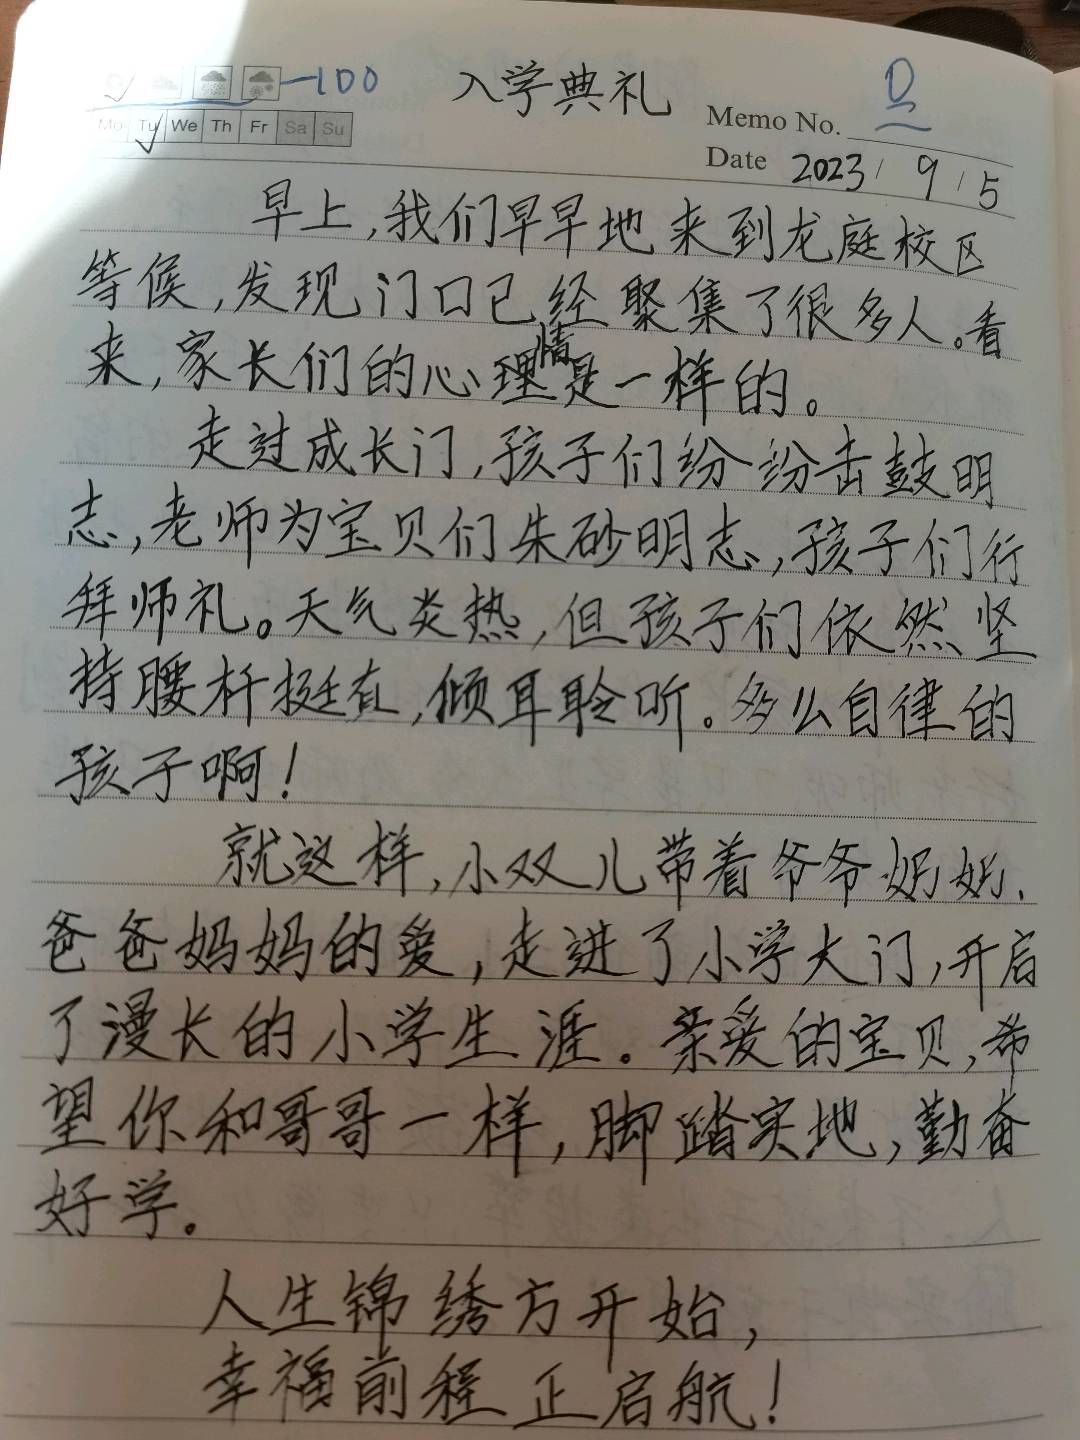 —100 入学典礼 Memo No. D
Mo Tu We Th Fr Sa Su
Date 2023 / 9 / 5
早上,我们早早地来到龙庭校区
等候,发现门口已经聚集了很多人。看
来,家长们的心理情是一样的。
走过成长门,孩子们纷纷击鼓明
志,老师为宝贝们朱砂明志,孩子们行
拜师礼。天气炎热,但孩子们依然坚
持腰杆挺直,倾耳聆听。多么自律的
孩子啊!
就这样,小双儿带着爷爷奶奶、
爸爸妈妈的爱,走进了小学大门,开启
了漫长的小学生涯。亲爱的宝贝,希
望你和哥哥一样,脚踏实地,勤奋
好学。
人生锦绣方开始,
幸福前程正启航!